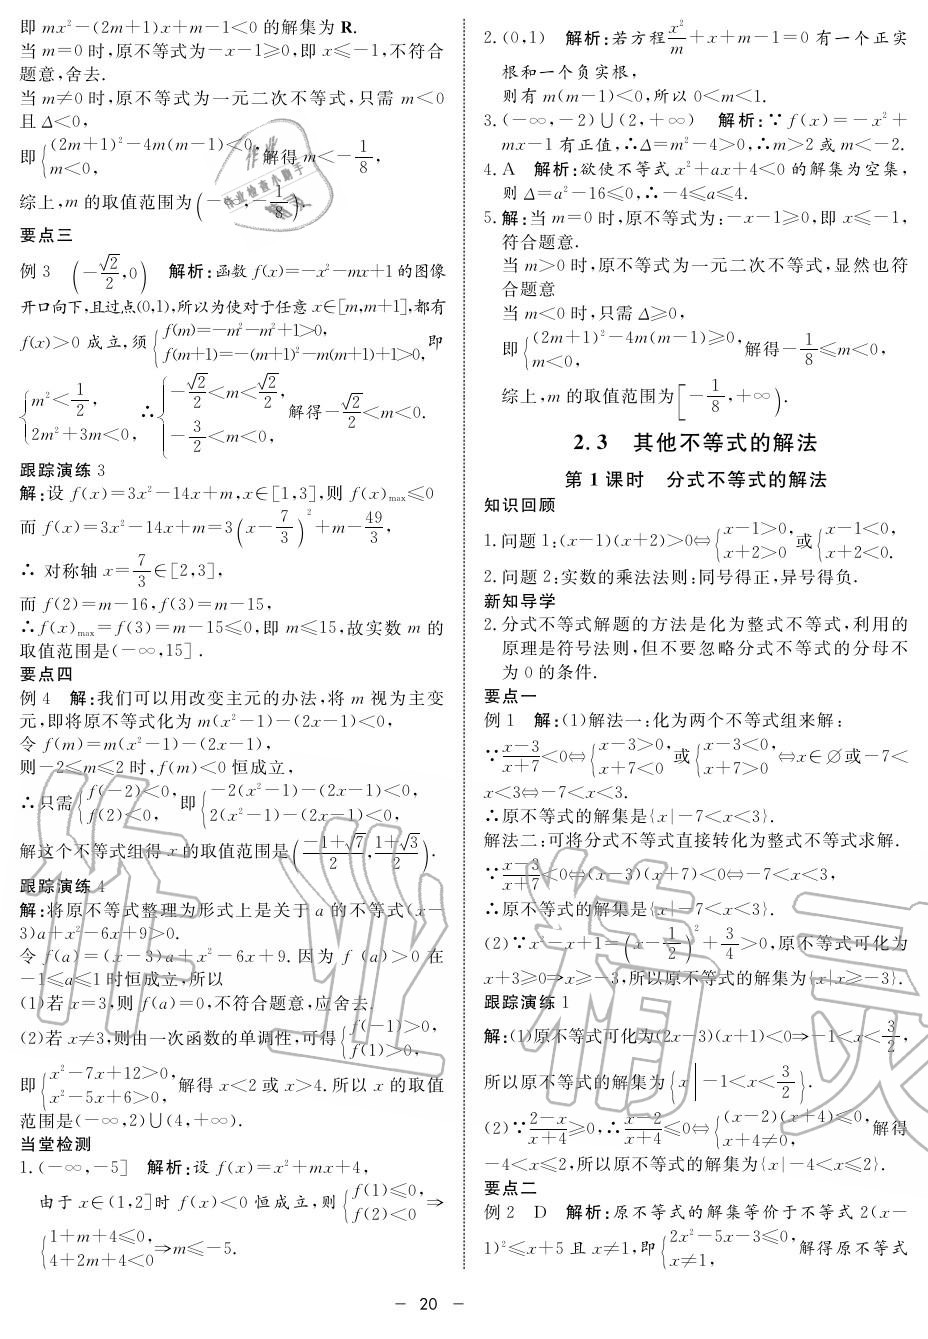 即 mx²-(2m+1)x+m-1<0 的解集为 R.
当 m=0 时,原不等式为-x-1≥0,即 x≤-1,不符合
题意,舍去.
当 m≠0 时,原不等式为一元二次不等式,只需 m<0
且 Δ<0,
即{(2m+1)²-4m(m-1)<0, m<0, 解得 m<-1/8,
综上,m 的取值范围为(-∞,-1/8).
要点三
例 3 (-√2/2,0) 解析:函数 f(x)=-x²-mx+1 的图像
开口向下,且过点(0,1),所以为使对于任意 x∈[m,m+1],都有
f(x)>0 成立,须{f(m)=-m²-m²+1>0, f(m+1)=-(m+1)²-m(m+1)+1>0, 即
{m²<1/2, 2m²+3m<0, ∴{-√2/2<m<√2/2, -3/2<m<0, 解得-√2/2<m<0.
跟踪演练 3
解:设 f(x)=3x²-14x+m,x∈[1,3],则 f(x)max≤0
而 f(x)=3x²-14x+m=3(x-7/3)²+m-49/3,
∴ 对称轴 x=7/3∈[2,3],
而 f(2)=m-16,f(3)=m-15,
∴f(x)max=f(3)=m-15≤0,即 m≤15,故实数 m 的
取值范围是(-∞,15].
要点四
例 4 解:我们可以用改变主元的办法,将 m 视为主变
元,即将原不等式化为 m(x²-1)-(2x-1)<0,
令 f(m)=m(x²-1)-(2x-1),
则-2≤m≤2 时,f(m)<0 恒成立,
∴只需{f(-2)<0, f(2)<0, 即{-2(x²-1)-(2x-1)<0, 2(x²-1)-(2x-1)<0,
解这个不等式组得 x 的取值范围是((-1+√7)/2,(1+√3)/2).
跟踪演练 4
解:将原不等式整理为形式上是关于 a 的不等式(x-
3)a+x²-6x+9>0.
令 f(a)=(x-3)a+x²-6x+9.因为 f (a)>0 在
-1≤a≤1 时恒成立,所以
(1)若 x=3,则 f(a)=0,不符合题意,应舍去.
(2)若 x≠3,则由一次函数的单调性,可得{f(-1)>0, f(1)>0,
即{x²-7x+12>0, x²-5x+6>0, 解得 x<2 或 x>4.所以 x 的取值
范围是(-∞,2)∪(4,+∞).
当堂检测
1.(-∞,-5] 解析:设 f(x)=x²+mx+4,
由于 x∈(1,2]时 f(x)<0 恒成立,则{f(1)≤0, f(2)<0 ⇒
{1+m+4≤0, 4+2m+4<0 ⇒m≤-5.
2.(0,1) 解析:若方程x²/m+x+m-1=0 有一个正实
根和一个负实根,
则有 m(m-1)<0,所以 0<m<1.
3.(-∞,-2)∪(2,+∞) 解析:∵f(x)=-x²+
mx-1 有正值,∴Δ=m²-4>0,∴m>2 或 m<-2.
4.A 解析:欲使不等式 x²+ax+4<0 的解集为空集,
则 Δ=a²-16≤0,∴-4≤a≤4.
5.解:当 m=0 时,原不等式为:-x-1≥0,即 x≤-1,
符合题意.
当 m>0 时,原不等式为一元二次不等式,显然也符
合题意
当 m<0 时,只需 Δ≥0,
即{(2m+1)²-4m(m-1)≥0, m<0, 解得-1/8≤m<0,
综上,m 的取值范围为[-1/8,+∞).
2.3 其他不等式的解法
第 1 课时 分式不等式的解法
知识回顾
1.问题 1:(x-1)(x+2)>0⇔{x-1>0, x+2>0 或{x-1<0, x+2<0.
2.问题 2:实数的乘法法则:同号得正,异号得负.
新知导学
2.分式不等式解题的方法是化为整式不等式,利用的
原理是符号法则,但不要忽略分式不等式的分母不
为 0 的条件.
要点一
例 1 解:(1)解法一:化为两个不等式组来解:
∵(x-3)/(x+7)<0⇔{x-3>0, x+7<0 或{x-3<0, x+7>0 ⇔x∈∅或-7<
x<3⇔-7<x<3.
∴原不等式的解集是{x|-7<x<3}.
解法二:可将分式不等式直接转化为整式不等式求解.
∵(x-3)/(x+7)<0⇔(x-3)(x+7)<0⇔-7<x<3,
∴原不等式的解集是{x|-7<x<3}.
(2)∵x²-x+1=(x-1/2)²+3/4>0,原不等式可化为
x+3≥0⇒x≥-3,所以原不等式的解集为{x|x≥-3}.
跟踪演练 1
解:(1)原不等式可化为(2x-3)(x+1)<0⇒-1<x<3/2,
所以原不等式的解集为{x|-1<x<3/2}.
(2)∵(2-x)/(x+4)≥0,∴(x-2)/(x+4)≤0⇔{(x-2)(x+4)≤0, x+4≠0, 解得
-4<x≤2,所以原不等式的解集为{x|-4<x≤2}.
要点二
例 2 D 解析:原不等式的解集等价于不等式 2(x-
1)²≤x+5 且 x≠1,即{2x²-5x-3≤0, x≠1, 解得原不等式
- 20 -
作业精灵
作业
作业检查小助手